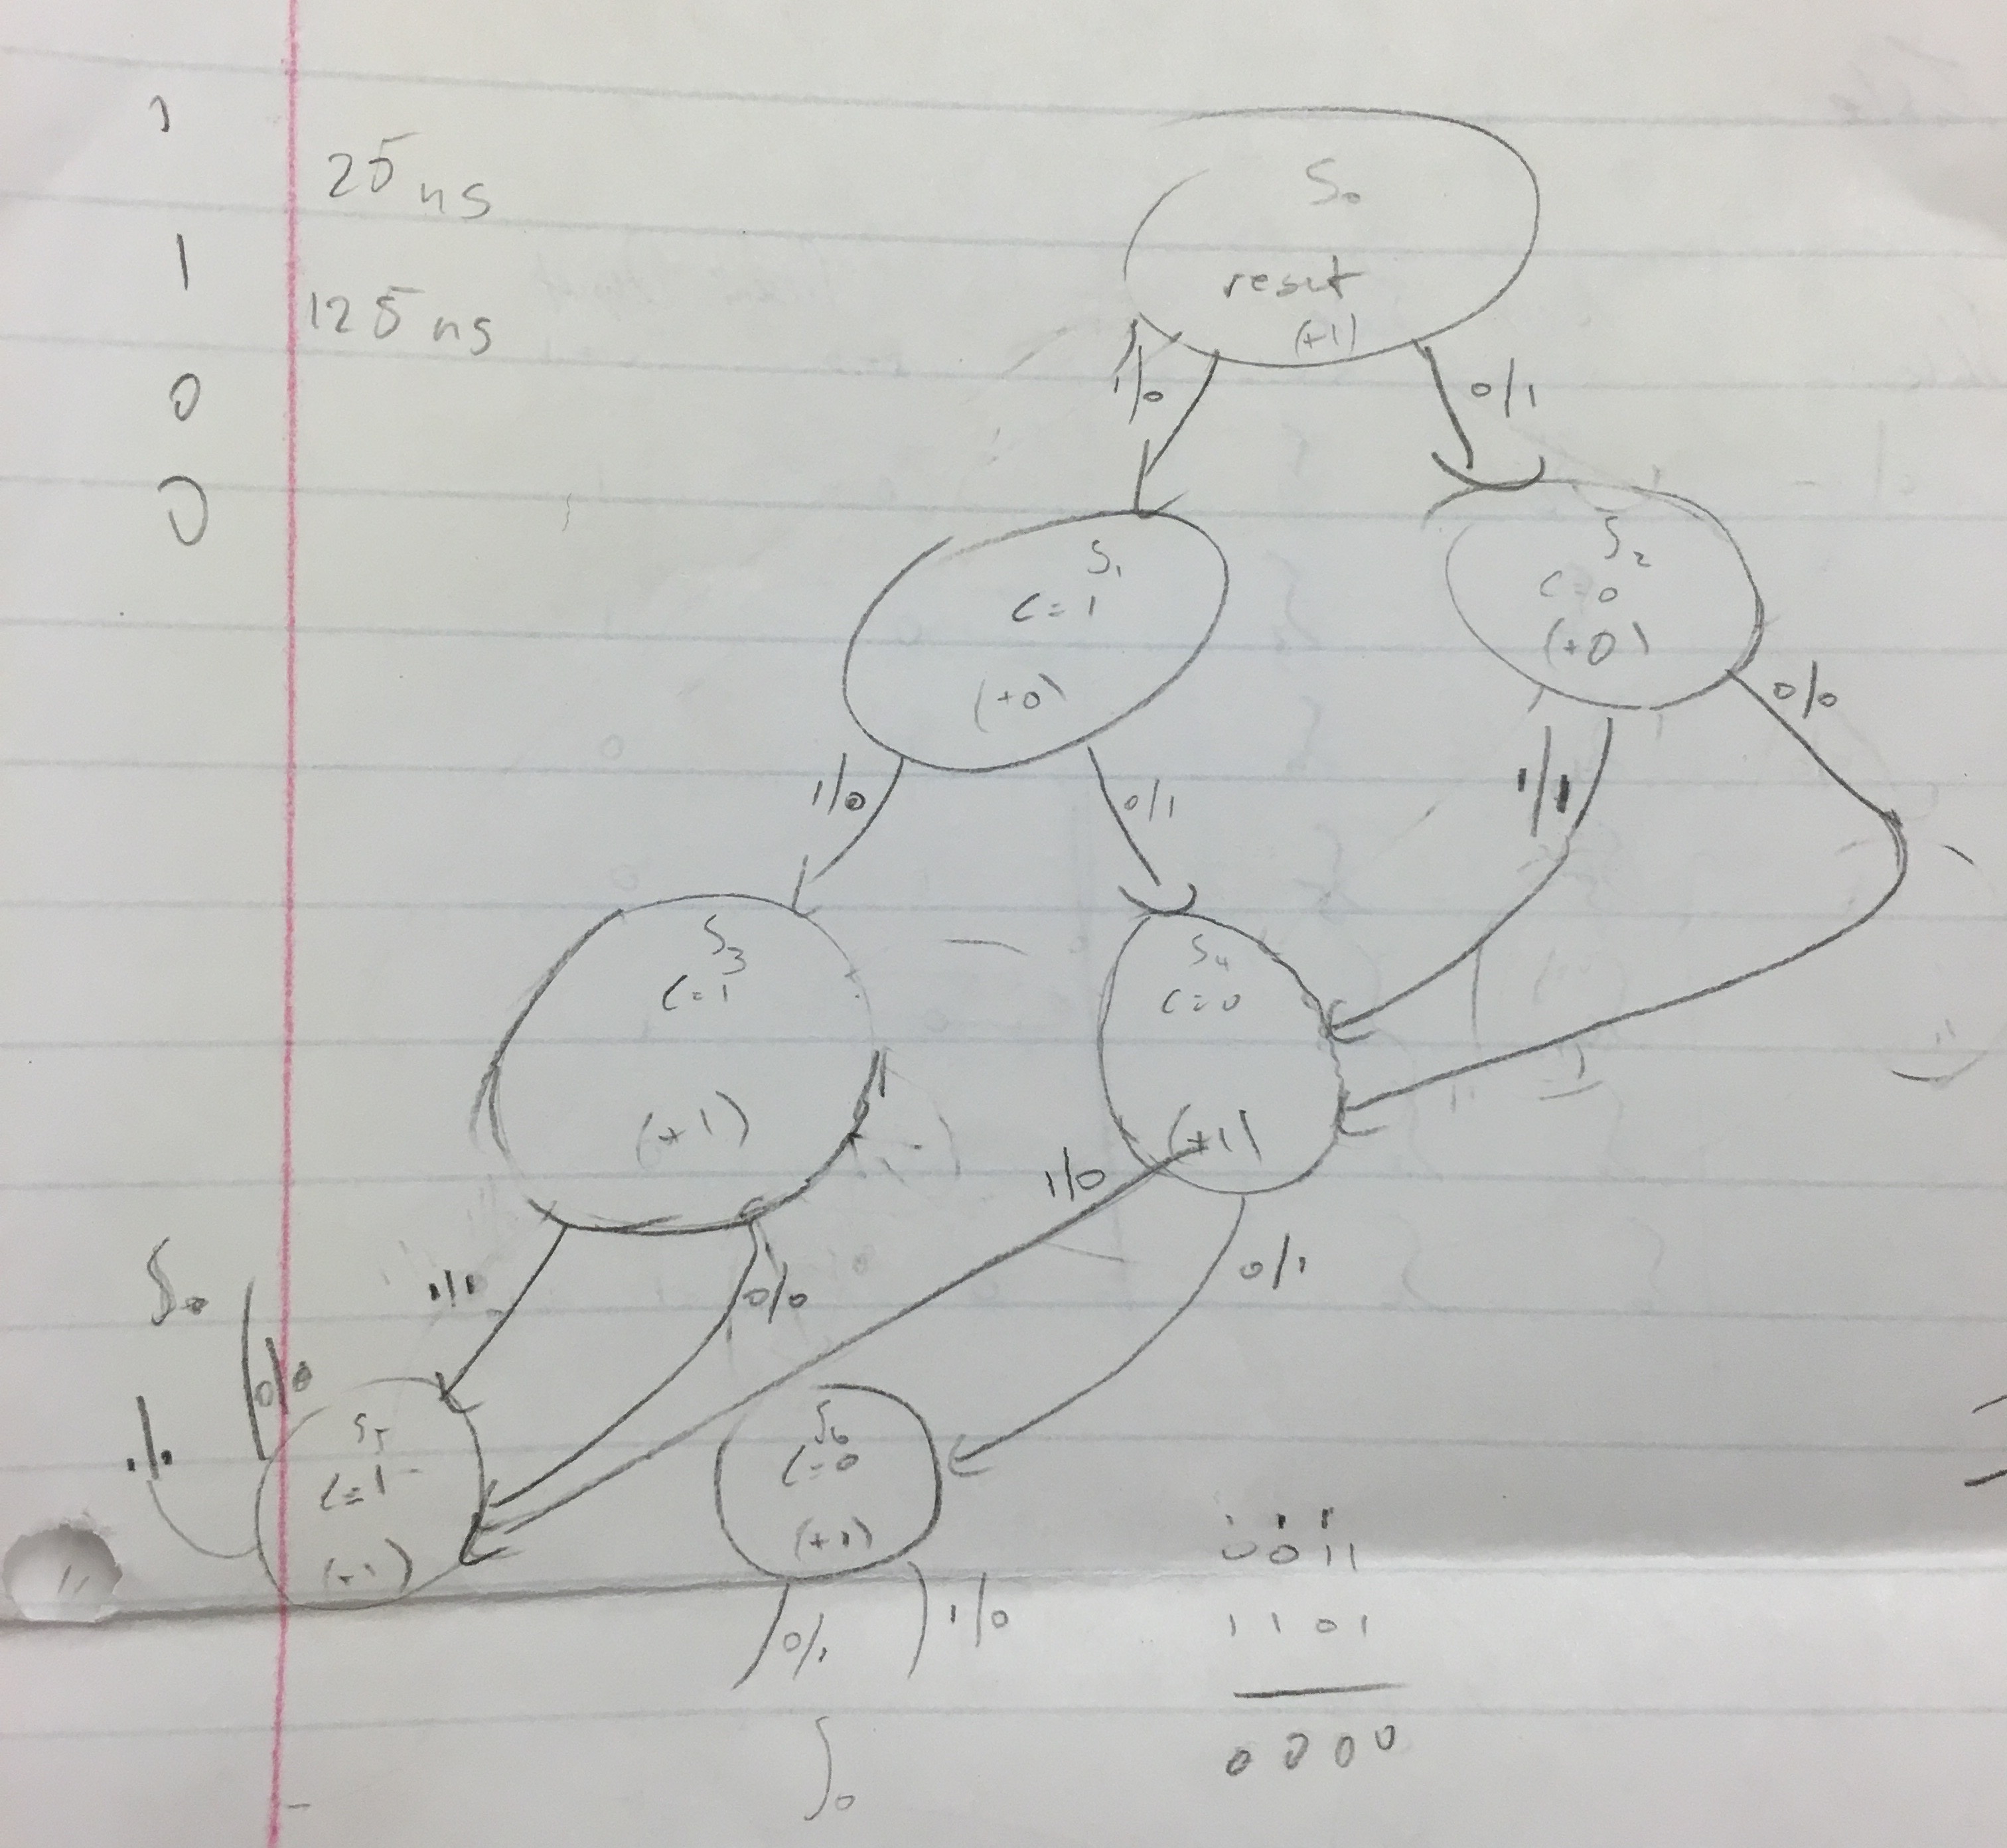 1
25 ns
1
125 ns
0
0
S0
reset
(+1)
1/0
0/1
S1
C=1
(+0)
S2
C=0
(+0)
1/0
0/1
1/1
0/0
S3
C=1
(+1)
S4
C=0
(+1)
1/1
0/0
1/0
0/1
S0
0/0
1/1
S5
C=1
(+1)
S6
C=0
(+1)
0/1
1/0
S0
1 1 1
0011
1101
0000